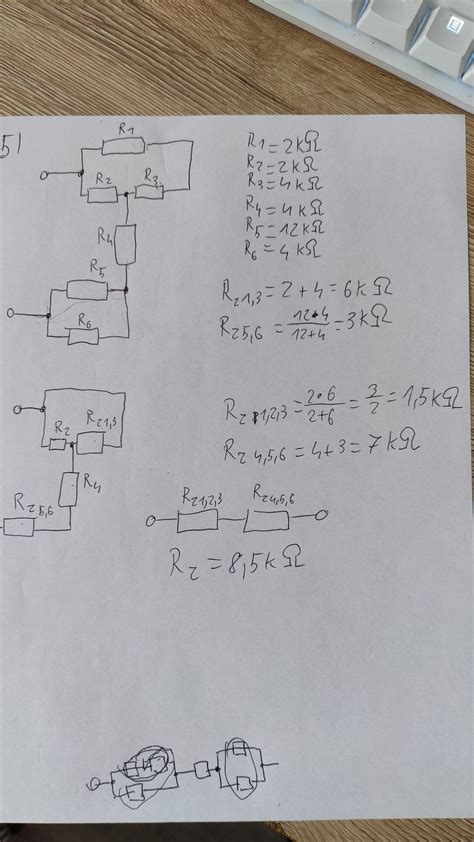 5)
R1
R2 R3
R4
R5
R6
R1=2kΩ
R2=2kΩ
R3=4kΩ
R4=4kΩ
R5=12kΩ
R6=4kΩ
Rz1,3=2+4=6kΩ
Rz5,6=12·4/12+4=3kΩ
R2 Rz1,3
R4
Rz5,6
Rz1,2,3=2·6/2+6=3/2=1,5kΩ
Rz4,5,6=4+3=7kΩ
Rz1,2,3 Rz4,5,6
Rz=8,5kΩ